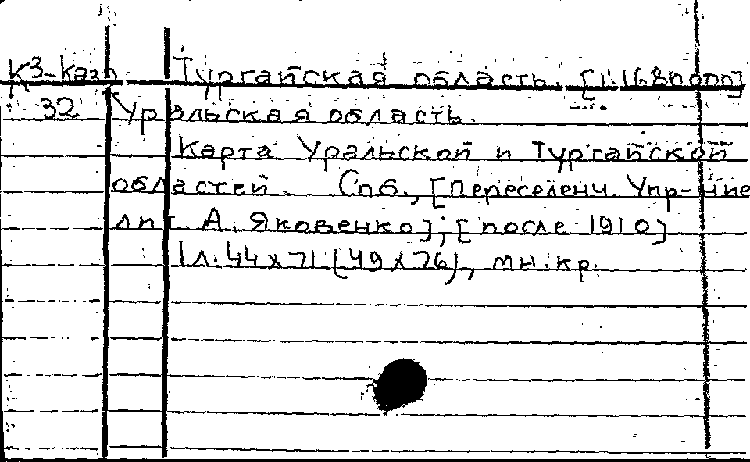 К3-Каз Тургайская область. [1:1680000]
32 Уральская область.
Карта Уральской и Тургайской
областей. Спб., [Переселенч. Упр-ние
лит. А. Яковенко]; [после 1910]
1 л. 44х71 (49х76), мн. кр.